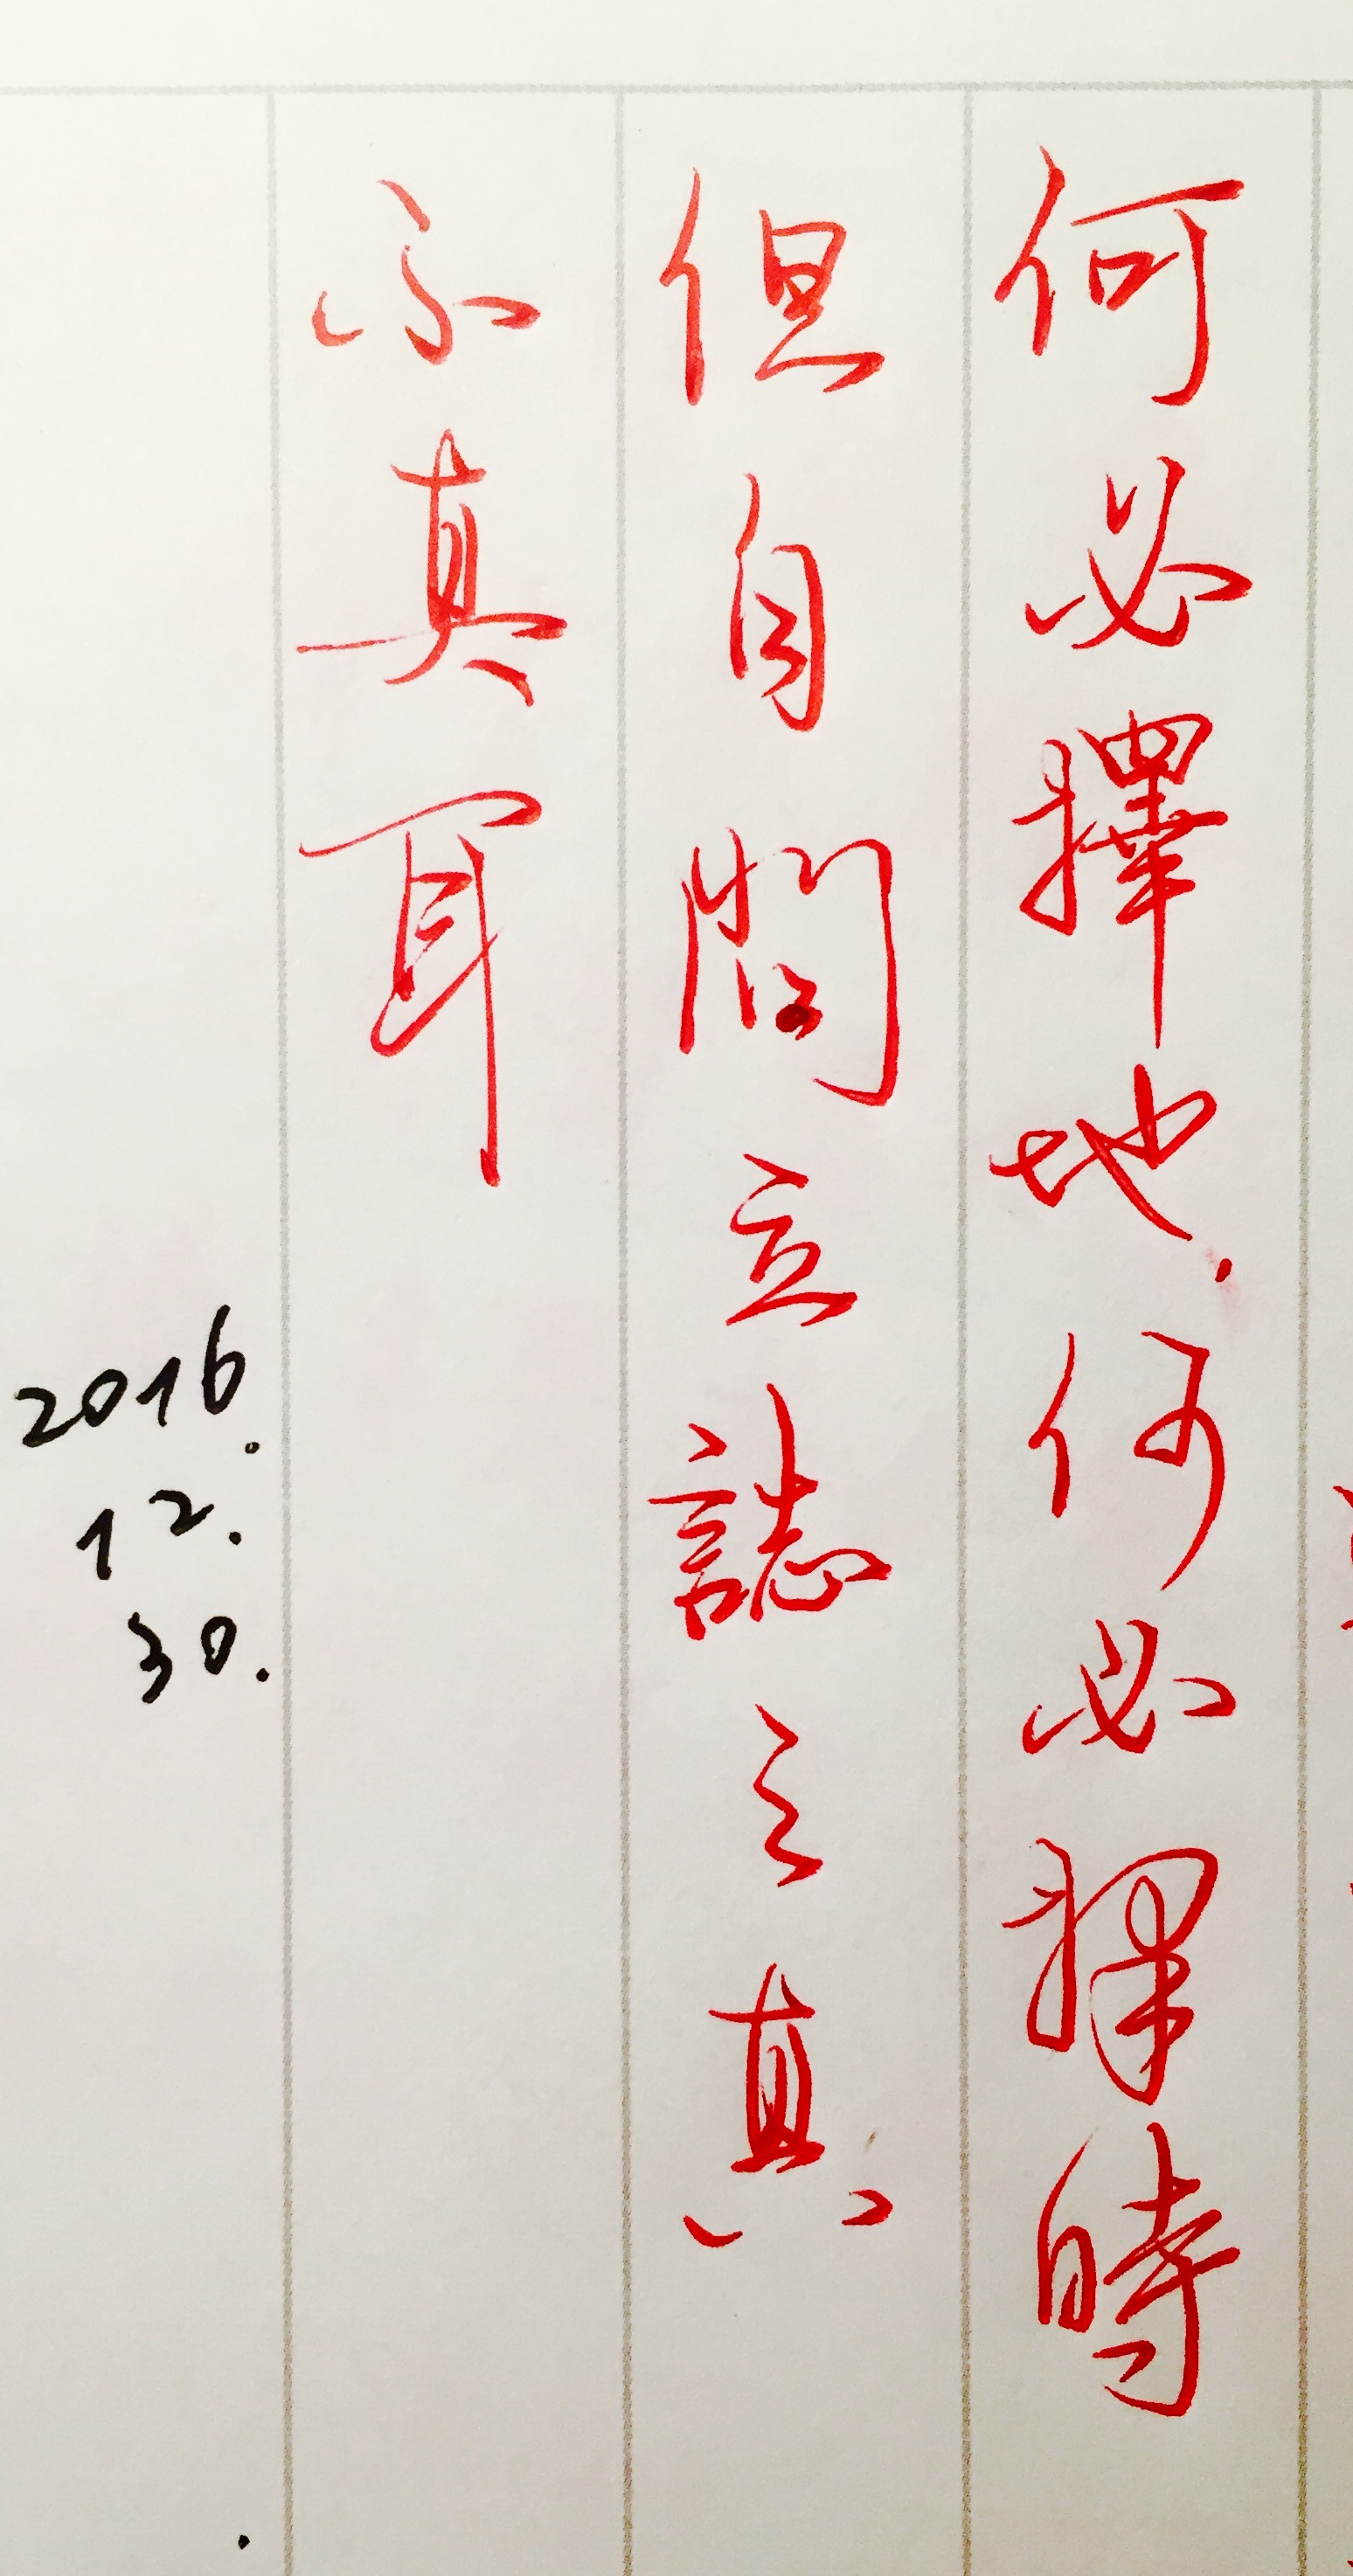 何必擇地.何必擇時
但自問立誌之真
不真耳
2016.
12.
30.